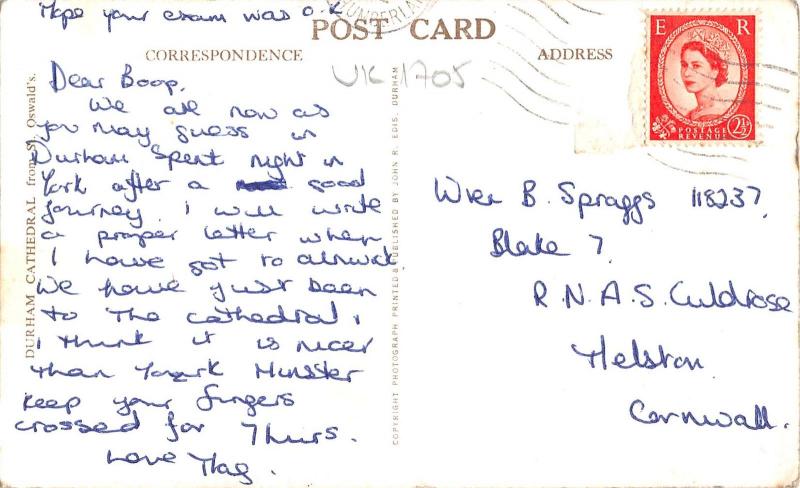 Hope your exam was O.K
POST CARD
CORRESPONDENCE
ADDRESS
UK 1705
E R
POSTAGE
REVENUE
2½
Dear Boop,
We are now as
you may guess in
Durham Spent night in
York after a good
journey. I will write
a proper letter when
I have got to alnwick
We have just been
to the cathedral,
I think it is nicer
than York Minster
keep your fingers
crossed for Thurs.
Love Mag.
Wren B. Spraggs 118237,
Blake 7,
R.N.A.S. Culdrose
Helston
Cornwall.
DURHAM CATHEDRAL from St. Oswald's.
COPYRIGHT PHOTOGRAPH PRINTED & PUBLISHED BY JOHN R. EDIS, DURHAM